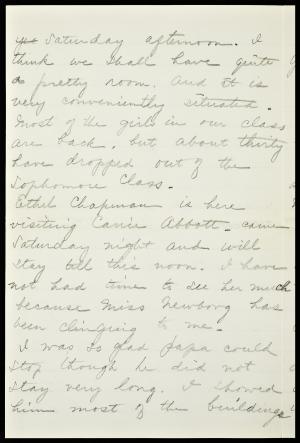 Saturday afternoon. I
think we shall have quite
a pretty room. And it is
very conveniently situated.
Most of the girls in our class
are back, but about thirty
have dropped out of the
Sophomore Class.
Ethel Chapman is here
visiting Carrie Abbott - came
Saturday night and will
stay till this noon. I have
not had time to see her much
because Miss Newborg has
been clinging to me.
I was so glad Papa could
stop though he did not
stay very long. I showed
him most of the buildings